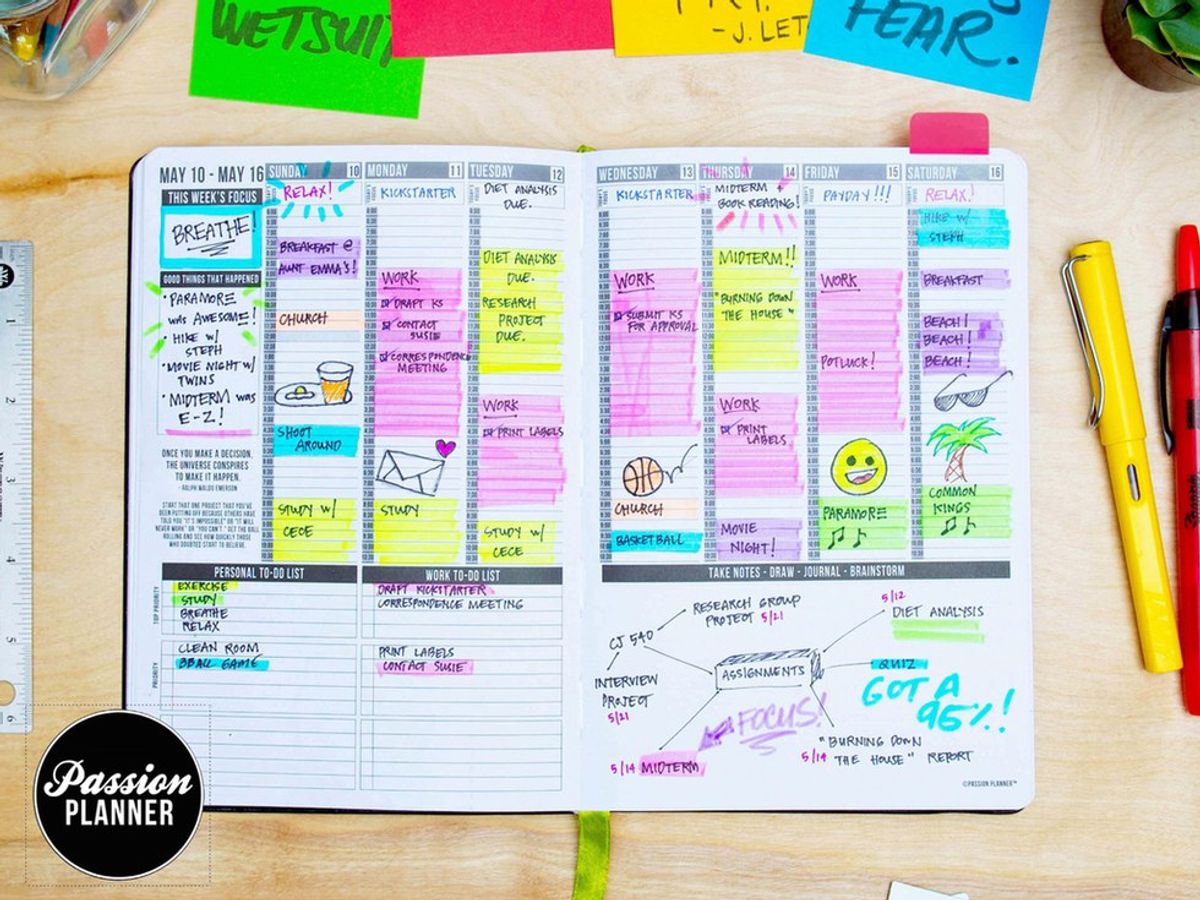 WETSUIT
- J. LET
FEAR.
MAY 10 - MAY 16
THIS WEEK'S FOCUS
BREATHE!
GOOD THINGS THAT HAPPENED
• PARAMORE
WAS AWESOME!
• HIKE W/
STEPH
• MOVIE NIGHT W/
TWINS
• MIDTERM WAS
E-Z!
ONCE YOU MAKE A DECISION,
THE UNIVERSE CONSPIRES
TO MAKE IT HAPPEN.
- RALPH WALDO EMERSON
START THAT ONE PROJECT THAT YOU'VE
BEEN PUTTING OFF BECAUSE OTHERS HAVE
TOLD YOU "IT'S IMPOSSIBLE" OR "IT WILL
NEVER WORK" OR "YOU CAN'T." GET THE BALL
ROLLING AND SEE HOW QUICKLY THOSE
WHO DOUBTED START TO BELIEVE.
SUNDAY 10
RELAX!
BREAKFAST @
AUNT EMMA'S!
CHURCH
SHOOT
AROUND
STUDY W/
CECE
MONDAY 11
KICKSTARTER
WORK
DRAFT KS
CONTACT
SUSIE
CORRESPONDENCE
MEETING
STUDY
TUESDAY 12
DIET ANALYSIS
DUE.
DIET ANALYSIS
DUE.
RESEARCH
PROJECT
DUE.
WORK
PRINT LABELS
STUDY W/
CECE
WEDNESDAY 13
KICKSTARTER
WORK
SUBMIT KS
FOR APPROVAL
CHURCH
BASKETBALL
THURSDAY 14
MIDTERM +
BOOK READING!
MIDTERM!!
"BURNING DOWN
THE HOUSE"
WORK
PRINT
LABELS
MOVIE
NIGHT!
FRIDAY 15
PAYDAY!!!
WORK
POTLUCK!
PARAMORE
SATURDAY 16
RELAX!
HIKE W/
STEPH
BREAKFAST
BEACH!
BEACH!
BEACH!
COMMON
KINGS
PERSONAL TO-DO LIST
TOP PRIORITY
EXERCISE
STUDY
BREATHE
RELAX
PRIORITY
CLEAN ROOM
BBALL GAME
WORK TO-DO LIST
DRAFT KICKSTARTER
CORRESPONDENCE MEETING
PRINT LABELS
CONTACT SUSIE
TAKE NOTES - DRAW - JOURNAL - BRAINSTORM
RESEARCH GROUP
PROJECT 5/21
CJ 540
INTERVIEW
PROJECT
5/21
ASSIGNMENTS
5/12
DIET ANALYSIS
QUIZ
GOT A
95%!
FOCUS!
5/14 MIDTERM
"BURNING DOWN
5/14 THE HOUSE" REPORT
©PASSION PLANNER™
1
2
3
4
5
6
Passion
PLANNER